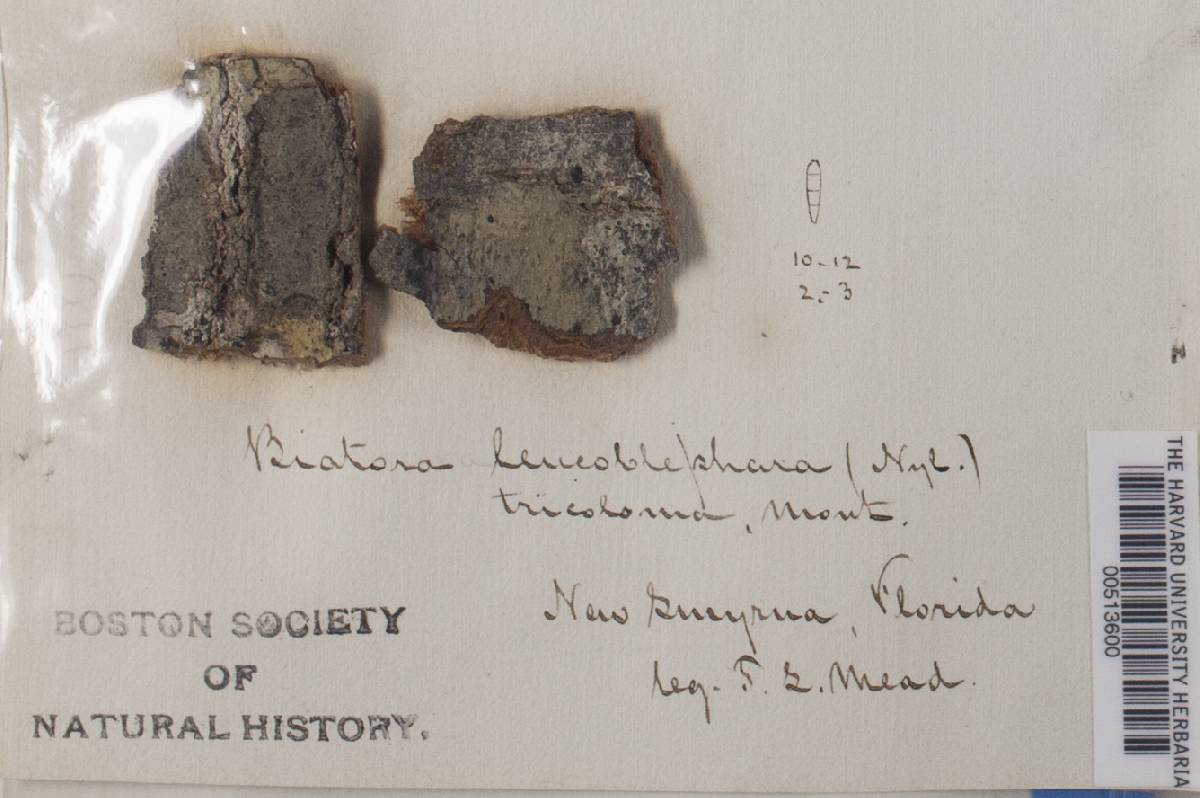 10-12
2-3
Biatora leucoblephara (Nyl.)
tricoloma, Mont.
New Smyrna, Florida
leg. F. S. Mead.
BOSTON SOCIETY
OF
NATURAL HISTORY.
THE HARVARD UNIVERSITY HERBARIA
00513600